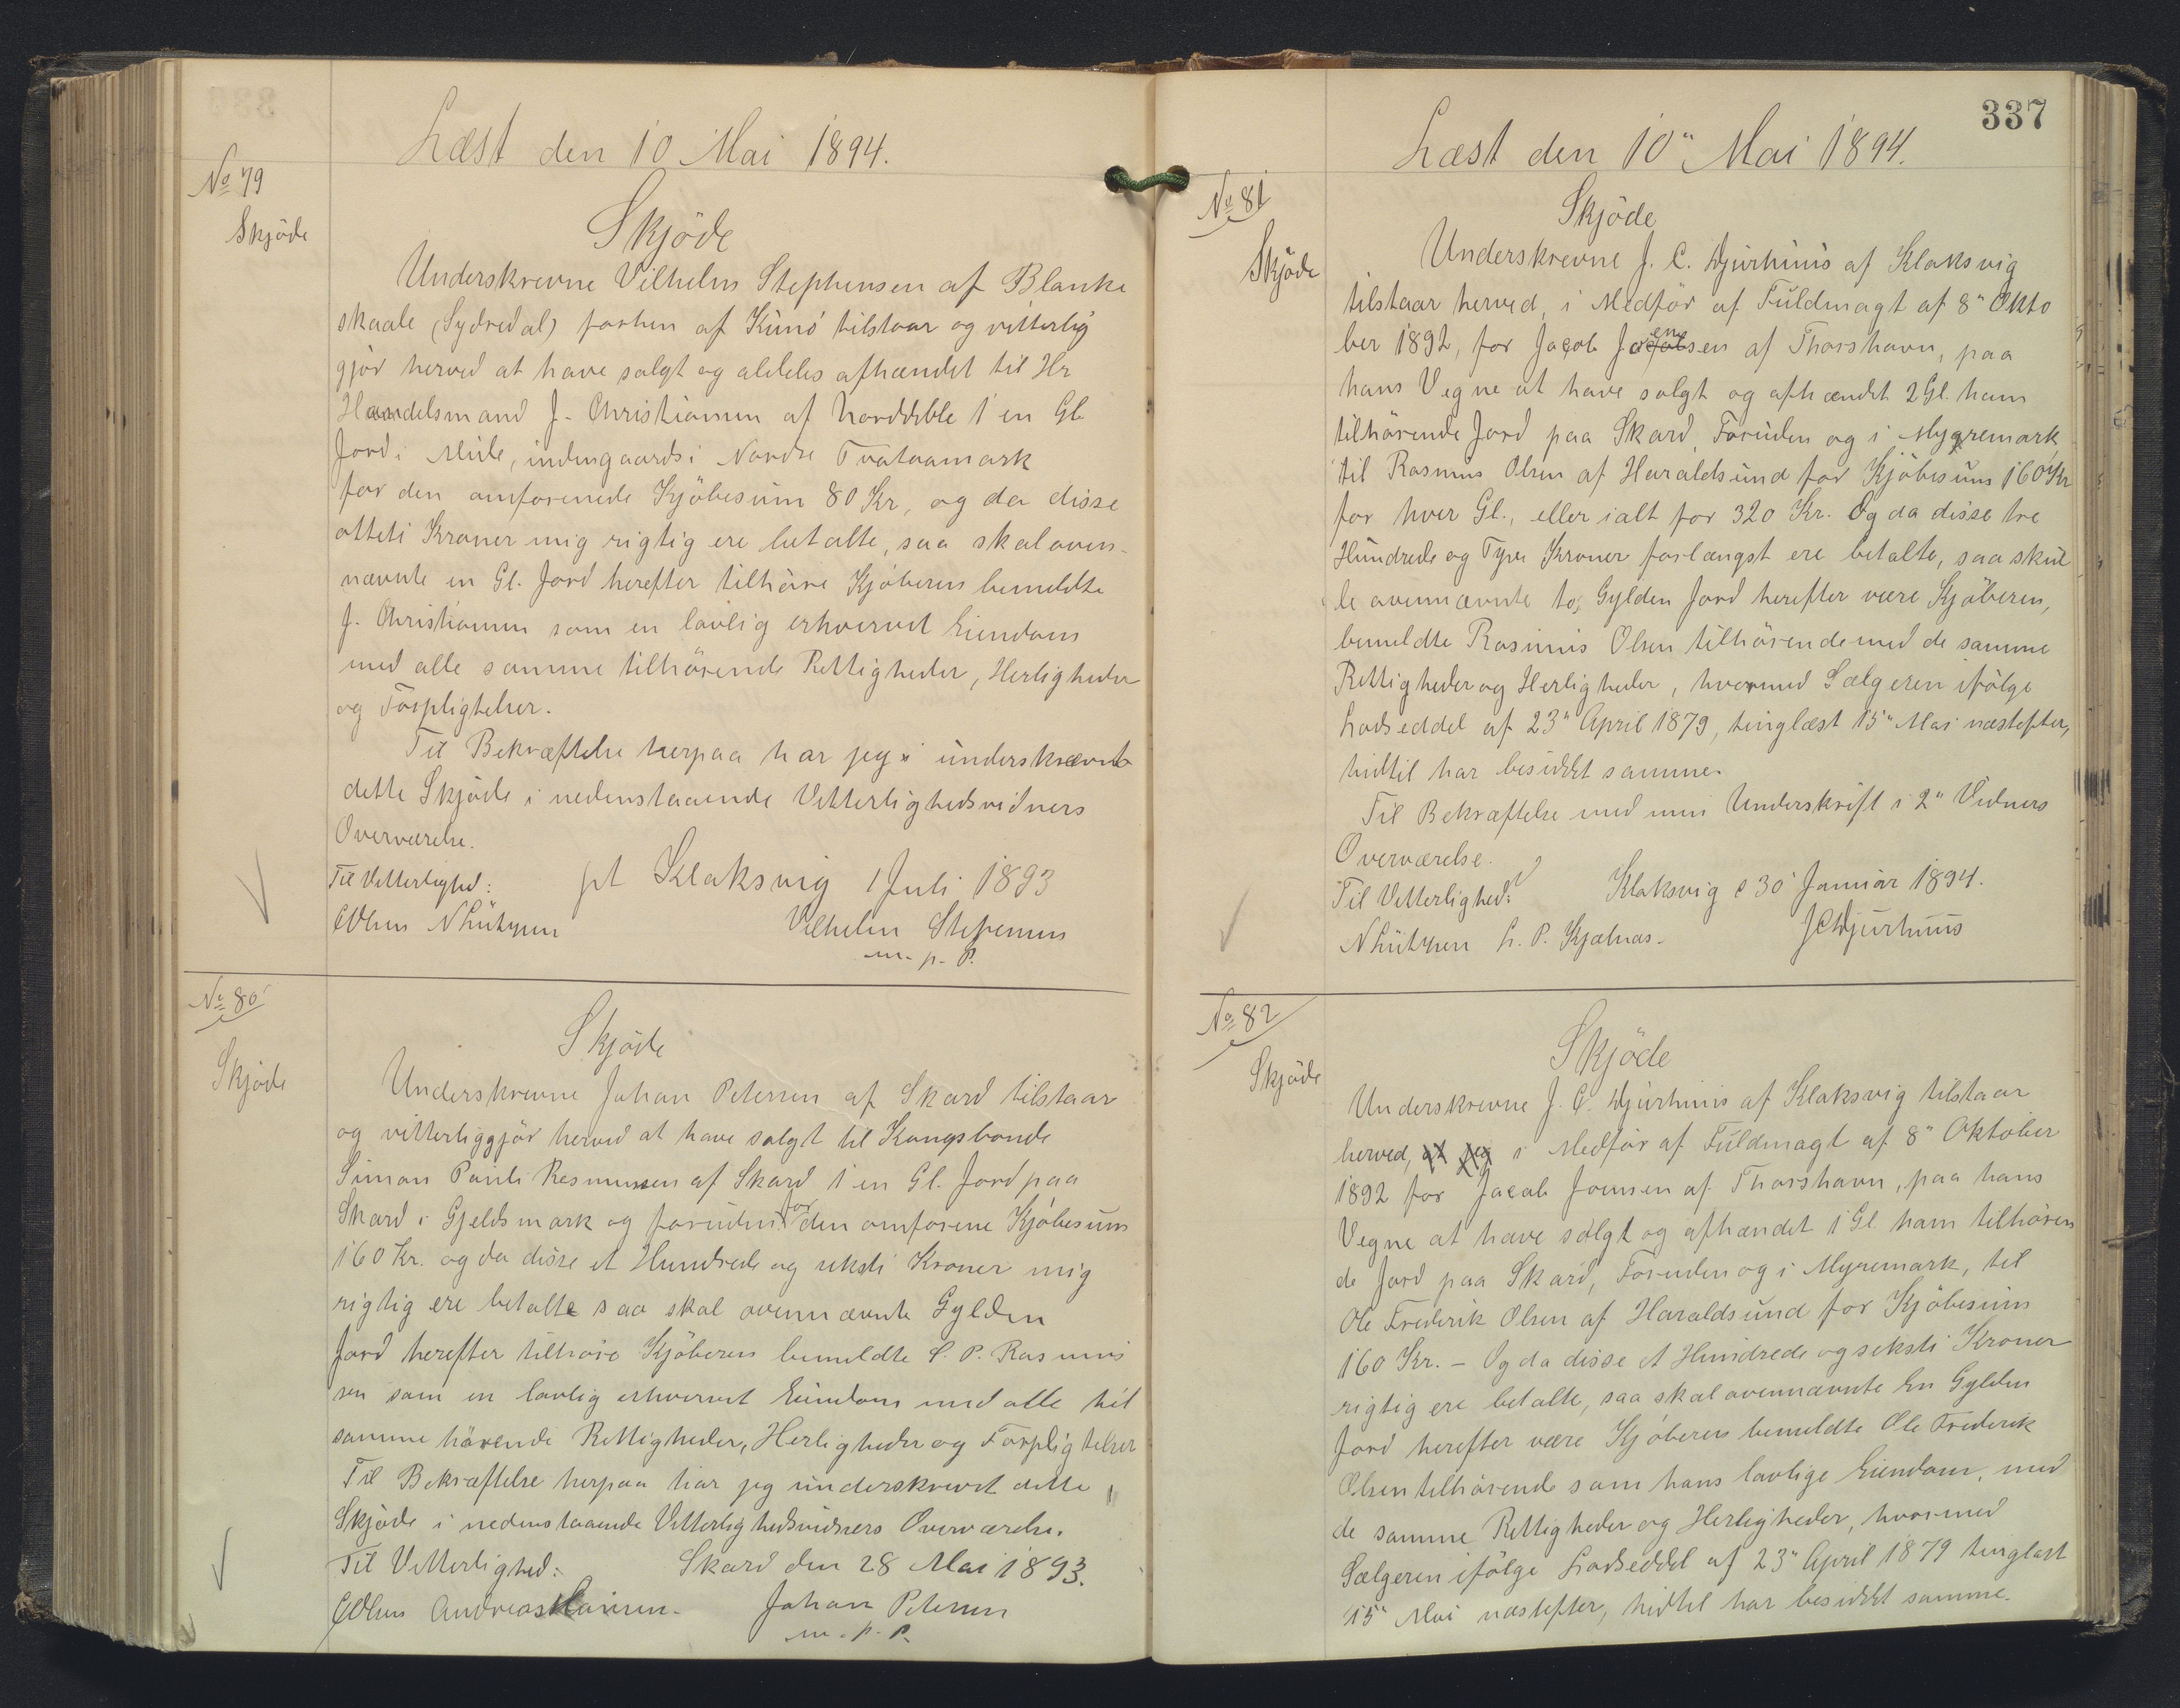 Læst den 10 Mai 1894.
No 79
Skjöde
Skjöde
Underskrevne Vilhelm Stephensen af Blanke
skaale (Sydredal) forhen af Kunö tilstaar og vitterlig
gjör herved at have solgt og aldeles afhændet til Hr
Handelsmand J. Christiansen af Norddeble 1 en Gl
Jord i Mule, indengaards i Nordre Tvataamark
for den omforenede Kjöbesum 80 Kr, og da disse
otteti Kroner mig rigtig ere betalte, saa skal oven-
nævnte en Gl. Jord herefter tilhöre Kjöberen bemeldte
J. Christiansen som en lovlig erhvervet Eiendom
med alle samme tilhörende Rettigheder, Herligheder
og Forpligtelser.
Til Bekræftelse herpaa har jeg underskrevet
dette Skjöde i nedenstaaende Vitterlighedsvidners
Overværelse.
Til Vitterlighed: pt Klaksvig 1 Juli 1893
Vilhelm Stefensen
m. p. P.
No 80
Skjöde
Skjöde
Underskrevne Johan Petersen af Skard tilstaar
og vitterliggjör herved at have solgt til Kongsbonde
Simon Pauli Rasmussen af Skard 1 en Gl. Jord paa
Skard i Gjeldsmark og foruden for den omforene Kjöbesum
160 Kr. og da disse et Hundrede og seksti Kroner mig
rigtig ere betalte saa skal ovennævnte Gylden
Jord herefter tilhöre Kjöberen bemeldte S. P. Rasmus
sen som en lovlig erhvervet Eiendom med alle til
samme hörende Rettigheder, Herligheder og Forpligtelser
Til Bekræftelse herpaa har jeg underskrevet dette
Skjöde i nedenstaaende Vitterlighedsvidners Overværelse.
Til Vitterlighed: Skard den 28 Mai 1893.
Andreas Hansen. Johan Petersen
m. p. P.
337
Læst den 10" Mai 1894.
No 81
Skjöde
Skjöde
Underskrevne J. C. Djurhuus af Klaksvig
tilstaar herved, i Medför af Fuldmagt af 8" Okto
ber 1892, for Jacob Joensen af Thorshavn, paa
hans Vegne at have solgt og afhændet 2 Gl. ham
tilhörende Jord paa Skard, Foruden og i Myremark
til Rasmus Olsen af Haraldsund for Kjöbesum 160 Kr
for hver Gl., eller ialt for 320 Kr. Og da disse tre
Hundrede og Tyve Kroner forlængst ere betalte, saa skul
le ovennævnte to Gylden Jord herefter være Kjöberen,
bemeldte Rasmus Olsen tilhörende med de samme
Rettigheder og Herligheder, hvormed Sælgeren ifölge
Lodseddel af 23" April 1879, tinglæst 15" Mai næstefter,
hidtil har besiddet samme.
Til Bekræftelse med min Underskrift i 2" Vidners
Overværelse.
Til Vitterlighed: Klaksvig d 30 Januar 1894.
H. P. Kjølnæs. J C Djurhuus
No 82
Skjöde
Skjöde
Underskrevne J. C. Djurhuus af Klaksvig tilstaar
herved, at jeg i Medför af Fuldmagt af 8" Oktober
1892 for Jacob Joensen af Thorshavn, paa hans
Vegne at have solgt og afhændet 1 Gl. ham tilhören
de Jord paa Skard, Foruden og i Myremark, til
Ole Frederik Olsen af Haraldsund for Kjöbesum
160 Kr. – Og da disse et Hundrede og seksti Kroner
rigtig ere betalte, saa skal ovennævnte En Gylden
Jord herefter være Kjöberen bemeldte Ole Frederik
Olsen tilhörende som hans lovlige Eiendom, med
de samme Rettigheder og Herligheder, hvormed
Sælgeren ifölge Lodseddel af 23" April 1879 tinglæst
15" Mai næstefter, hidtil har besiddet samme.